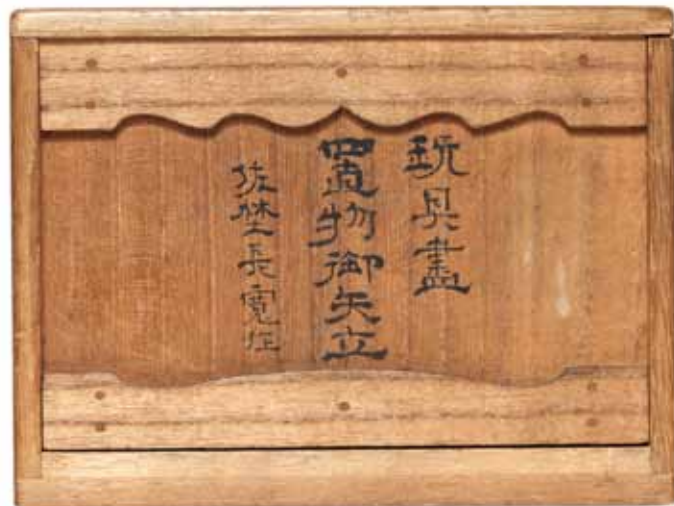 玩具盡
置物御矢立
佐埜長寛作